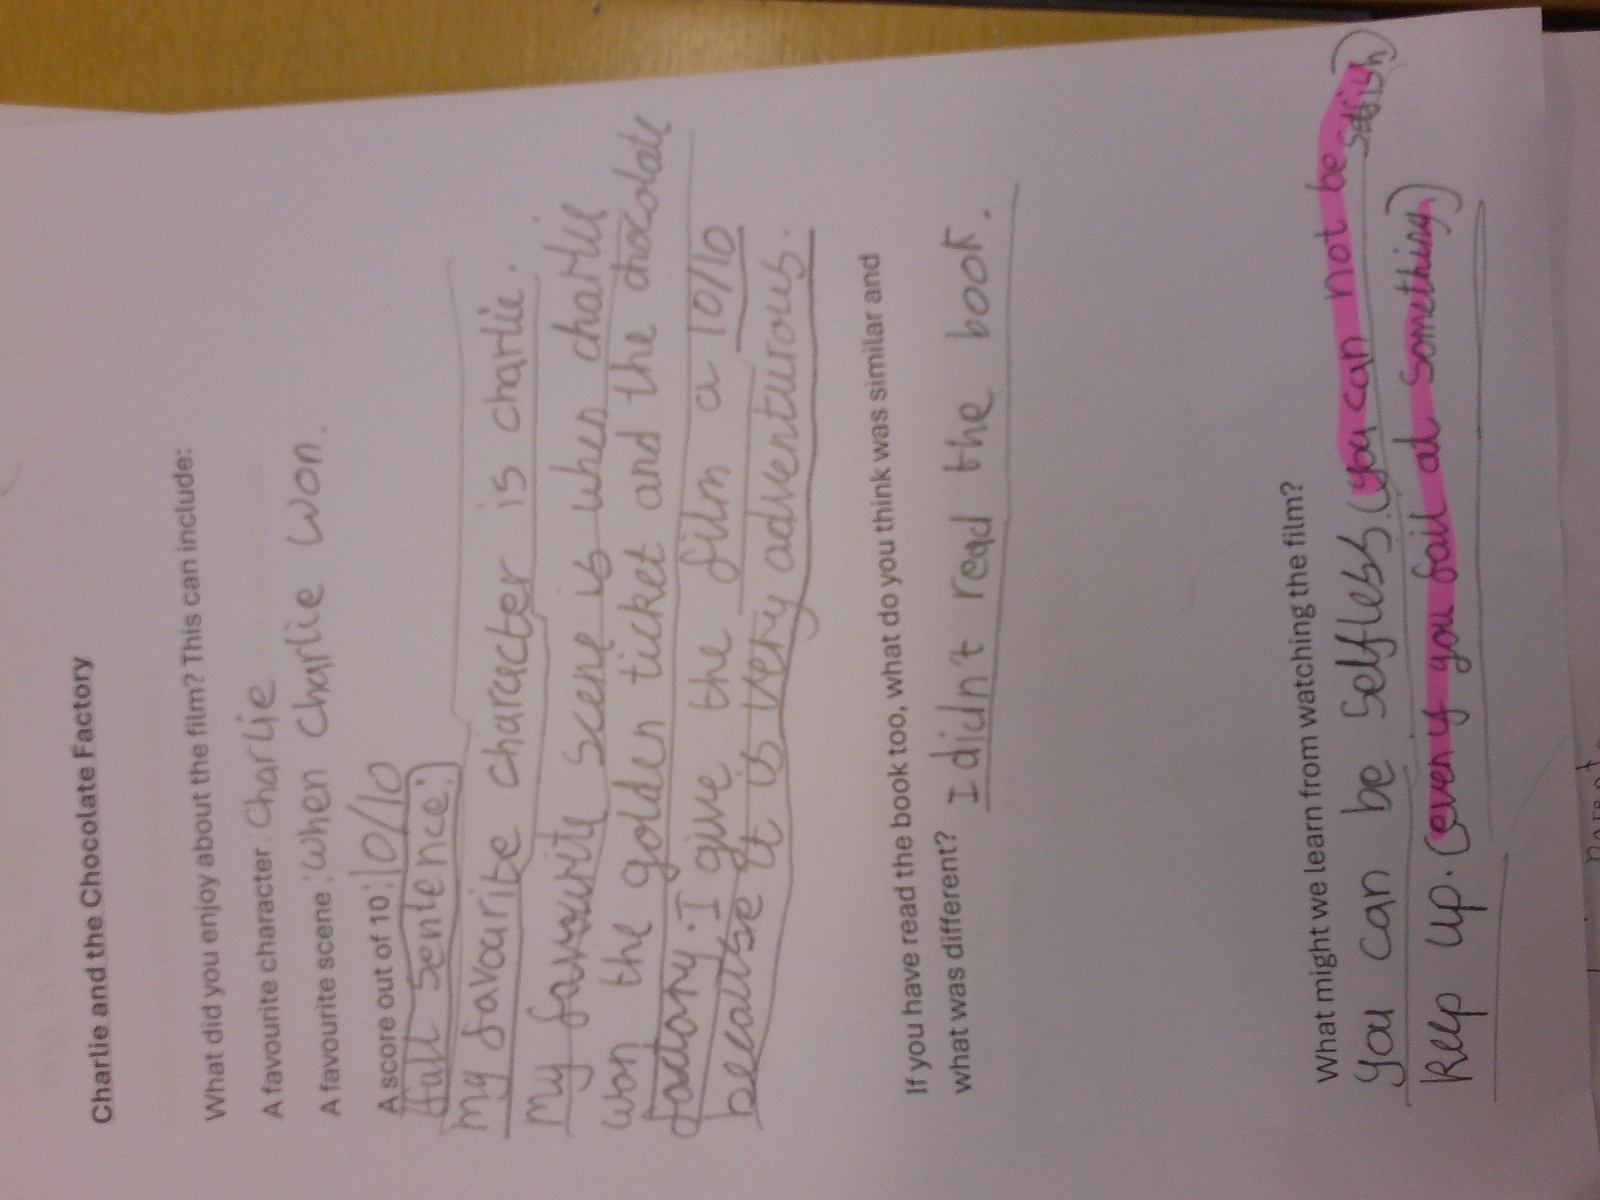 Charlie and the Chocolate Factory
What did you enjoy about the film? This can include:
A favourite character: Charlie
A favourite scene: When Charlie won.
A score out of 10: 10/10
full sentence:
My favourite character is charlie.
My favourite scene is when charlie
won the golden ticket and the chocolate
factory. I give the film a 10/10
because it is very adventurous.
If you have read the book too, what do you think was similar and
what was different? I didn't read the book.
What might we learn from watching the film?
You can be selfless. (you can not be selfish)
Keep up. (even if you fail at something)